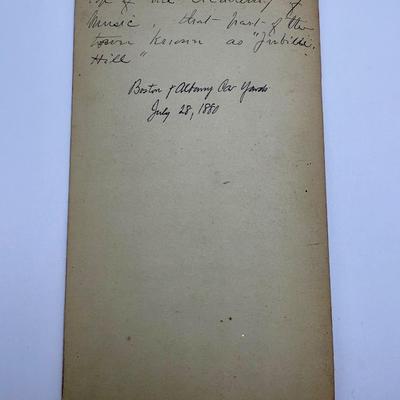 of the Academy of
Music, that part of the
town known as "Jubilee
Hill"
Boston & Albany Car Yards
July 28, 1880